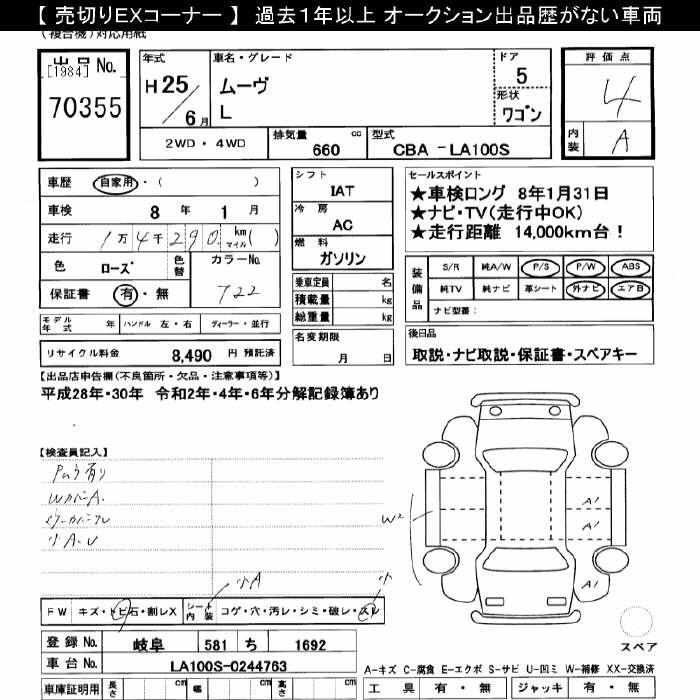 【 売切りEXコーナー 】 過去1年以上 オークション出品歴がない車両
(複合機)対応用紙
出品 No.
[1984]
70355
年式
H 25
6 月
車名・グレード
ムーヴ
L
ドア
5
形状
ワゴン
評価点
4
内装
A
2WD・4WD
排気量
660
cc
型式
CBA -LA100S
車歴
自家用・( )
車検
8 年 1 月
走行
1万4千290 km マイル( )
色
ローズ
色替
カラーNo.
722
保証書
有・無
モデル年式
年
ハンドル 左・右
ディーラー・並行
リサイクル料金 8,490 円 預託済
シフト
IAT
冷房
AC
燃料
ガソリン
乗車定員 名
積載量 kg
総重量 kg
名変期限
月 日
セールスポイント
★車検ロング 8年1月31日
★ナビ・TV(走行中OK)
★走行距離 14,000km台!
装備品
S/R 純A/W P/S P/W ABS
純TV 純ナビ 革シート 外ナビ エアB
ナビ型番:
後日品
取説・ナビ取説・保証書・スペアキー
【出品店申告欄(不良箇所・欠品・注意事項等)】
平成28年・30年 令和2年・4年・6年分解記録簿あり
【検査員記入】
Pムラ有り
WカバーA.
小A.U
W2
A1
A1
A1
小A
小
FW
キズ・トビ石・割レX
シート内装
コゲ・穴・汚レ・シミ・破レ・スレ
スペア
登録 No.
岐阜 581 ち 1692
車台 No.
LA100S-0244763
A-キズ C-腐食 E-エクボ S-サビ U-凹ミ W-補修 XX-交換済
車庫証明用
長さ cm
幅 cm
高さ cm
工具 有・無
ジャッキ 有・無